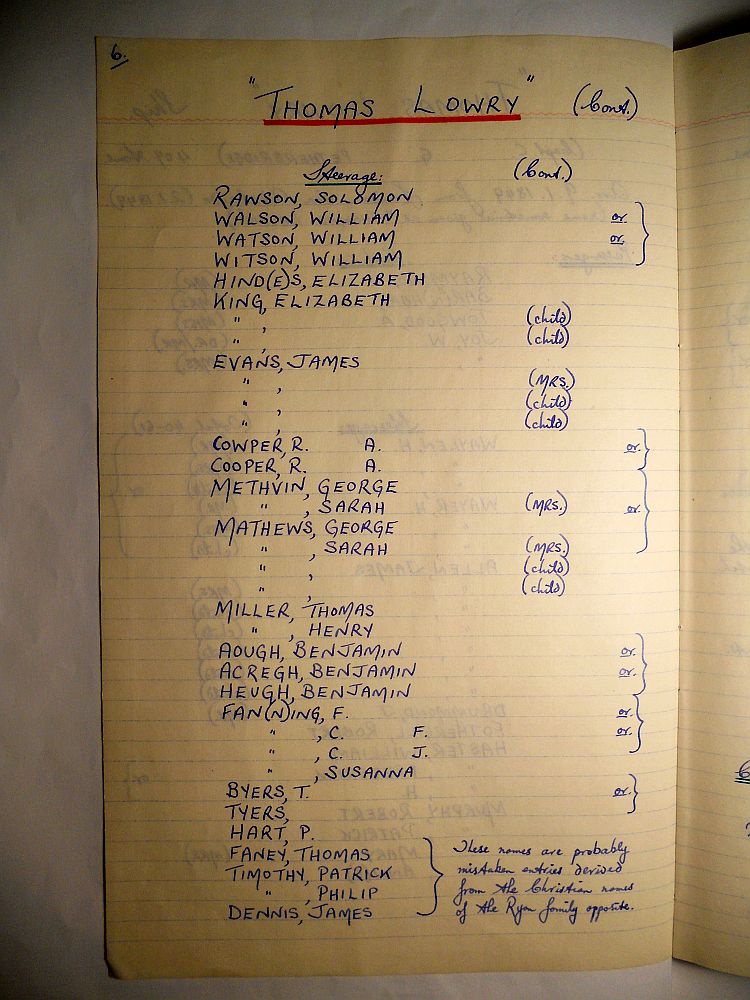 6.
"THOMAS LOWRY" (Cont.)
Steerage: (Cont.)
RAWSON, SOLOMON
WALSON, WILLIAM or
WATSON, WILLIAM or
WITSON, WILLIAM
HIND(E)S, ELIZABETH
KING, ELIZABETH
" , (child)
" , (child)
EVANS, JAMES
" , (MRS.)
" , (child)
" , (child)
COWPER, R. A. or
COOPER, R. A.
METHVIN, GEORGE
" , SARAH (MRS.) or
MATHEWS, GEORGE
" , SARAH (MRS.)
" , (child)
" , (child)
MILLER, THOMAS
" , HENRY
AOUGH, BENJAMIN or
ACREGH, BENJAMIN or
HEUGH, BENJAMIN
FAN(N)ING, F. or
" , C. F. or
" , C. J.
" , SUSANNA
BYERS, T. or
TYERS,
HART, P.
FANEY, THOMAS These names are probably
TIMOTHY, PATRICK mistaken entries derived
" , PHILIP from the Christian names
DENNIS, JAMES of the Ryan family opposite.